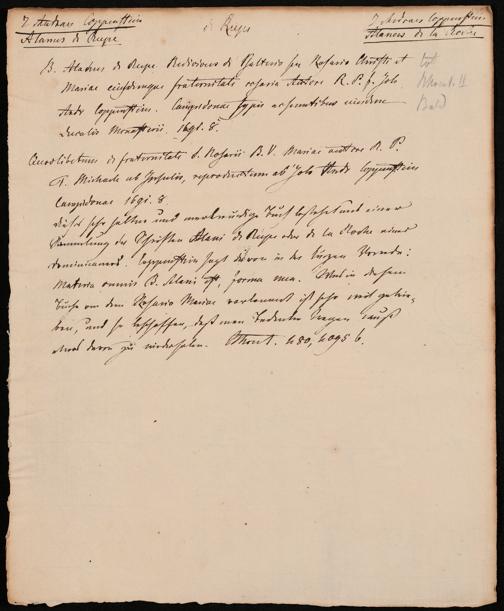 J. Andreas Coppenstein
Alanus de Rupe
de Rupe
J. Andreas Coppenstein
Alanus de la Roche
B. Alanus de Rupe Redivivus de Psalterio seu Rosario Christi et
Mariae ejusdemque fraternitate rosaria Autore R. P. f. Joh
Andr Coppenstein. Campidonae typis
Ducalis Monasterii. 1691. 8.
Quodlibetum de fraternitate S. Rosarii B. V. Mariae auctore R. P.
F. Michaele ab Insulis, reproductum ab Joh Andr Coppenstein
Campidonae 1691. 8
Dieses sehr seltene und merkwürdige Buch besteht aus einer
Sammlung der Schriften Alani de Rupe oder de la Roche eines
Dominicaners. Coppenstein sagt davon in der kurzen Vorrede:
Materia omnis B. Alani est, forma mea. Was in diesem
Buche von dem Rosario Mariae vorkommt ist sehr
und so beschaffen, daß man Bedenken tragen muß
etwas davon zu wiederholen. 480, 1095 b.